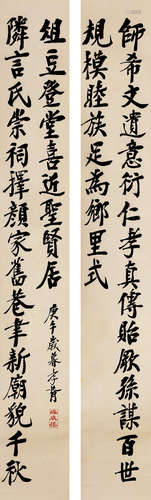 師希文遺意衍仁孝真傳貽厥孫謀百世
規模睦族足為鄉里式
組豆登堂喜近聖賢居
隣言氏崇祠擇顏家舊巷聿新廟貌千秋
庚午歲暮孝胥